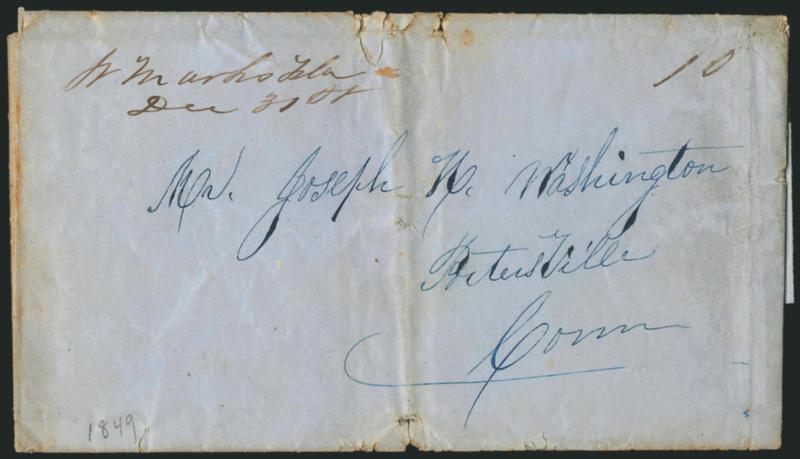 St Marks Fla
Dec 31st
10
Mr. Joseph N. Washington
Petersville
Conn
1849